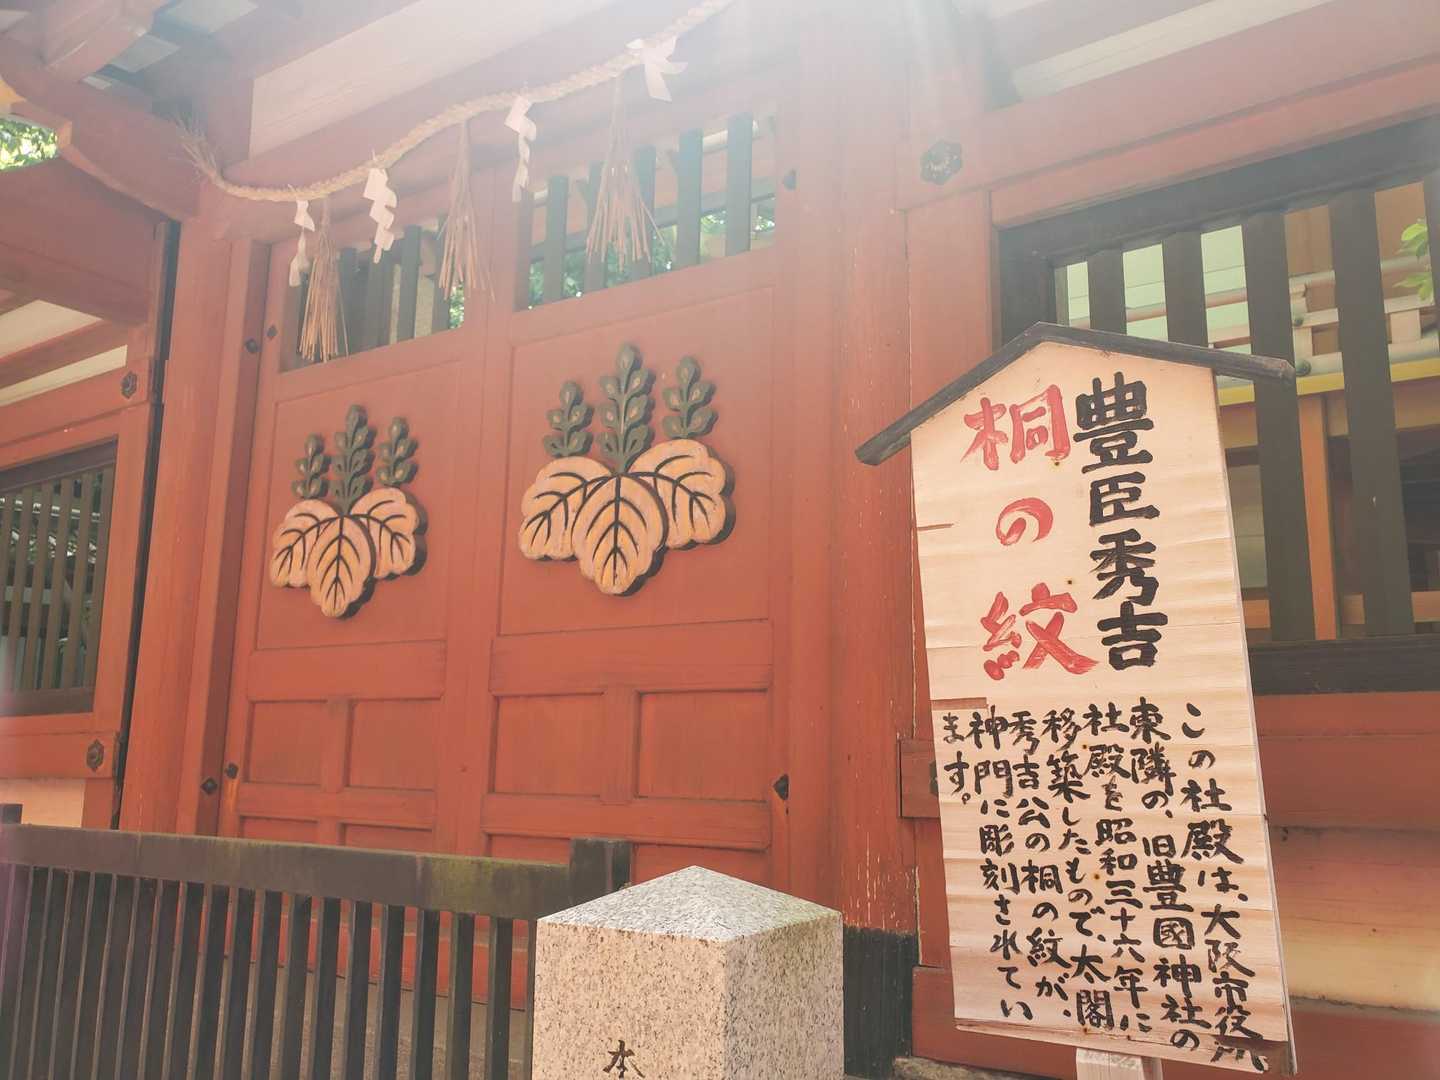 豊臣秀吉
桐の紋
この社殿は、大阪市役所、
東隣の、旧豊國神社の
社殿を昭和三十六年に
移築したもので、太閤
秀吉公の桐の紋が、
神門に彫刻されてい
ます。
本